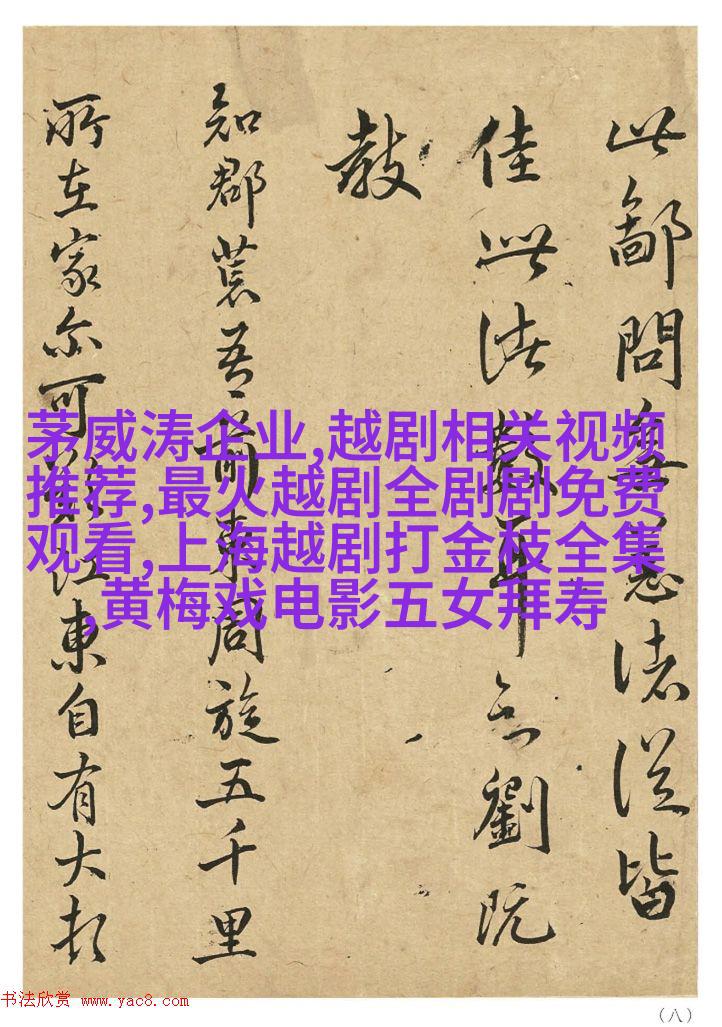 此鄙問無恙諸從皆
佳此諸數耳劉既
教
知郡荒吾前東周旋五千里
所在家尓可江東自有大
茅威涛企业,越剧相关视频
推荐,最火越剧全剧剧免费
观看,上海越剧打金枝全集
,黄梅戏电影五女拜寿
书法欣赏 www.yac8.com
（八）